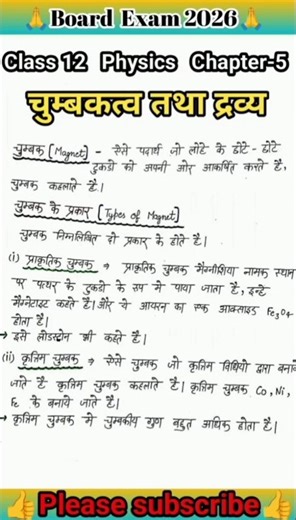 🙏Board Exam 2026🙏
Class 12 Physics Chapter-5
चुम्बकत्व तथा द्रव्य
चुम्बक [Magnet] - ऐसे पदार्थ जो लोहे के छोटे-छोटे
टुकड़ो को अपनी ओर आकर्षित करते है,
चुम्बक कहलाते है।
चुम्बक के प्रकार [Types of Magnet]
चुम्बक निम्नलिखित दो प्रकार के होते है।
(i) प्राकृतिक चुम्बक → प्राकृतिक चुम्बक मैग्नीशिया नामक स्थान
पर पत्थर के टुकड़ो के रूप मे पाया जाता है, इन्हे
मैग्नेटाइट कहते है। और ये आयरन का एक आक्साइड Fe3O4
होता है।
→ इसे लोडस्टोन भी कहते है।
(ii) कृत्रिम चुम्बक → ऐसे चुम्बक जो कृत्रिम विधियो द्वारा बनाये
जाते है कृत्रिम चुम्बक कहलाते है। कृत्रिम चुम्बक Co, Ni,
Fe के बनाये जाते है।
→ कृत्रिम चुम्बक मे चुम्बकीय गुण बहुत अधिक होता है।
👍Please subscribe👍